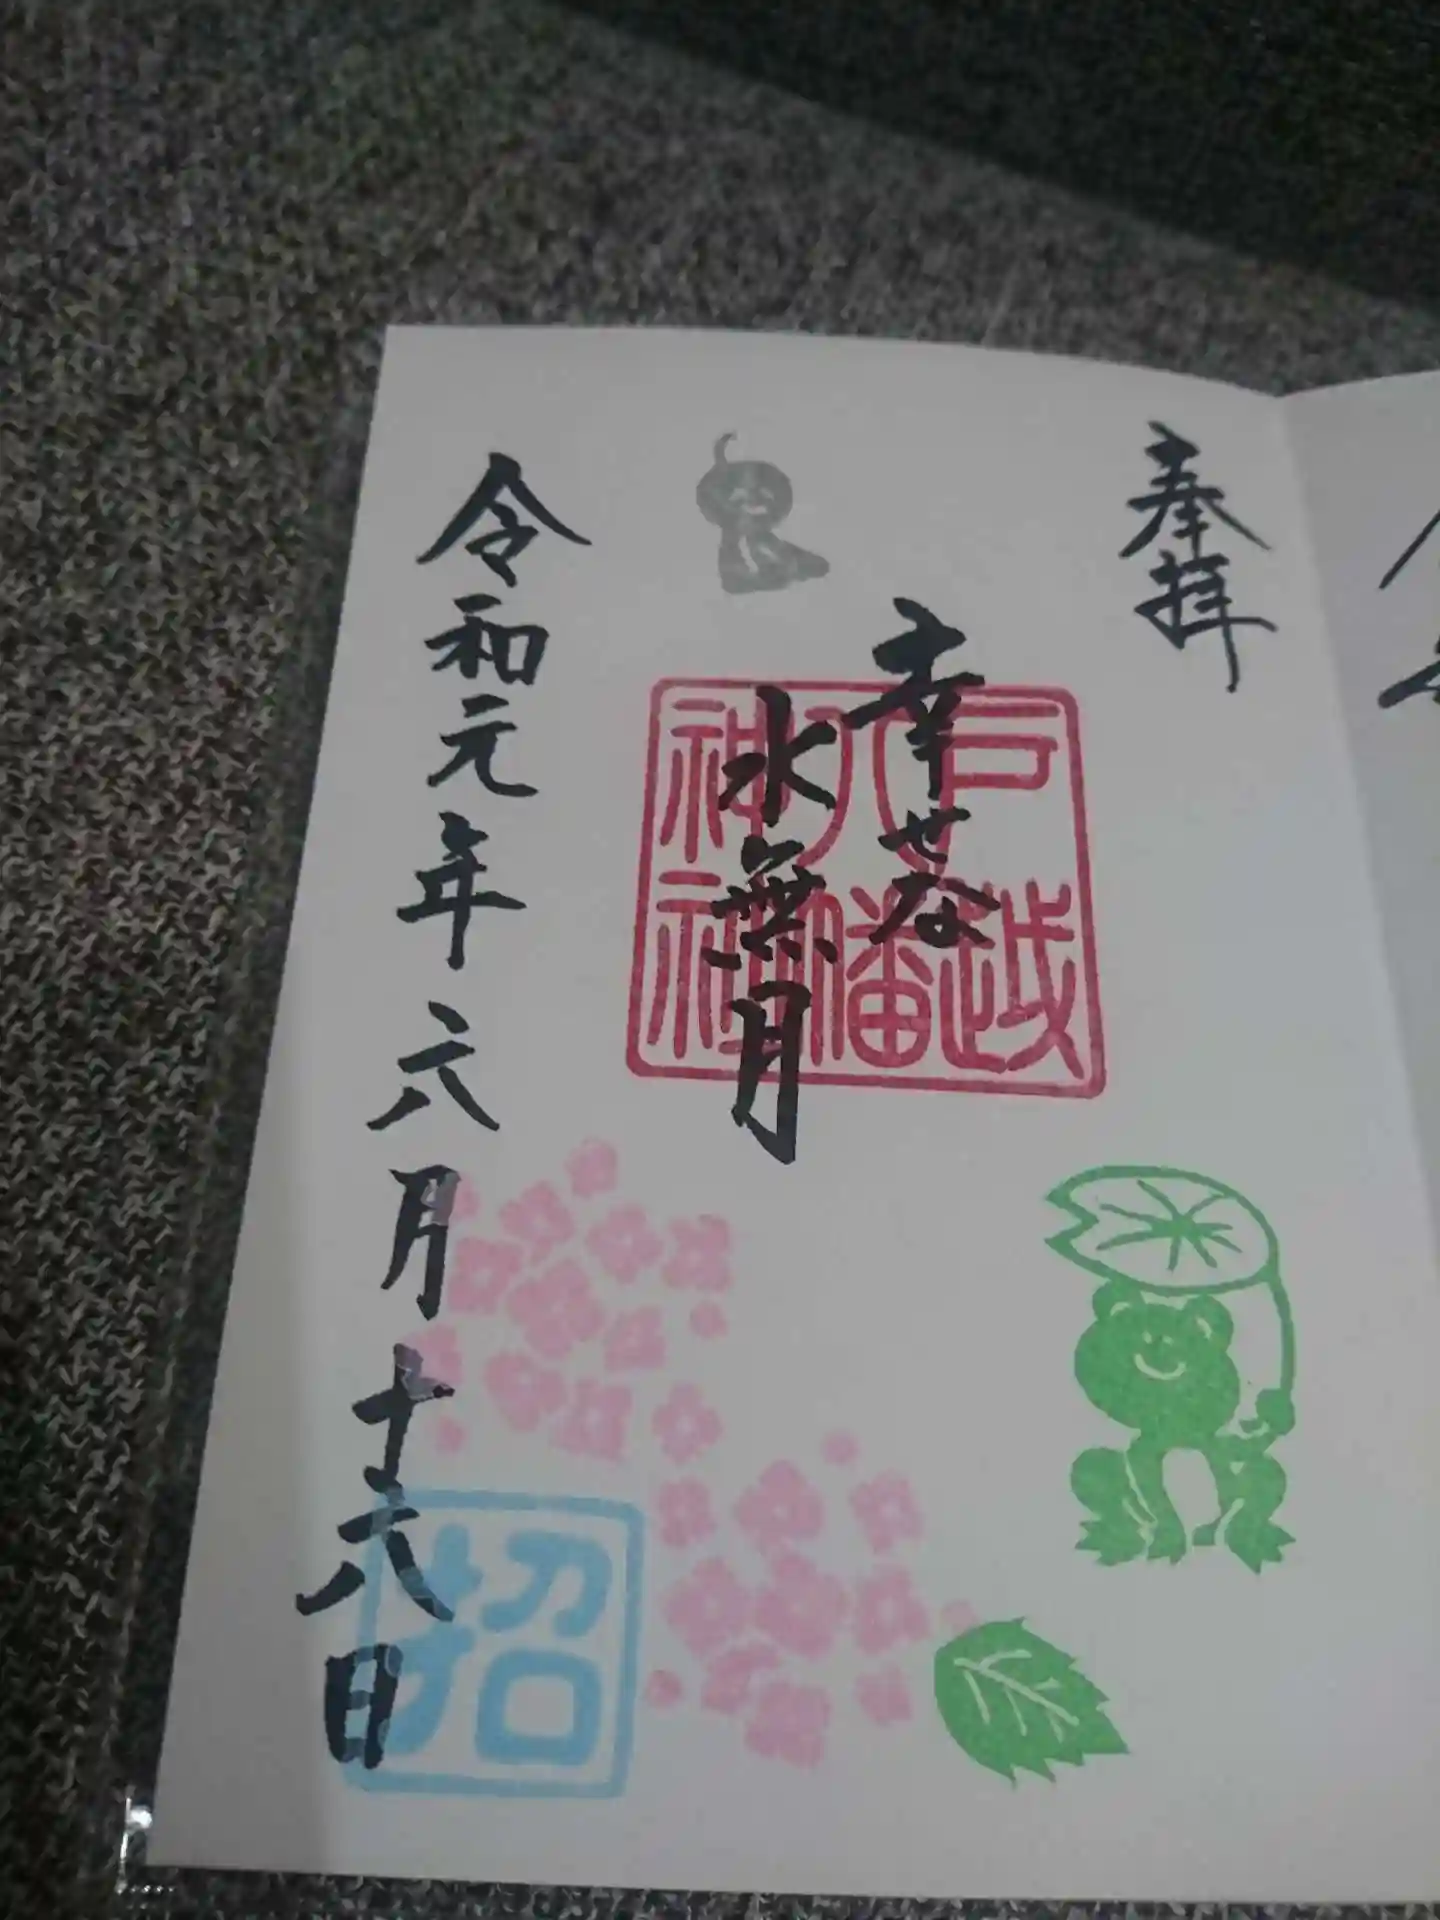 奉拝
幸せな
水無月
戸越
八幡
神社
令和元年六月十六日
招